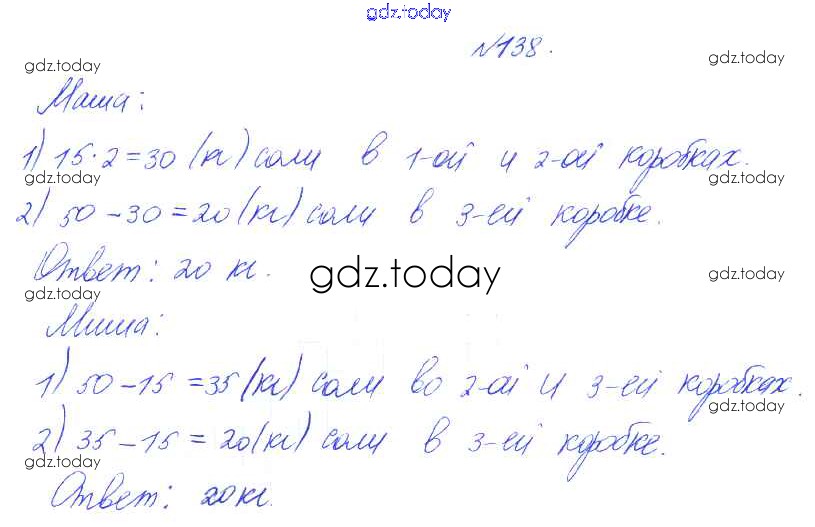 gdz.today
№138.
gdz.today gdz.today
Маша:
1) 15·2=30 (кг) соли в 1-ой и 2-ой коробках.
gdz.today gdz.today
2) 50-30=20 (кг) соли в 3-ей коробке.
Ответ: 20 кг.
gdz.today gdz.today gdz.today
Миша:
1) 50-15=35 (кг) соли во 2-ой и 3-ей коробках.
gdz.today
2) 35-15=20 (кг) соли в 3-ей коробке.
gdz.today
Ответ: 20 кг.